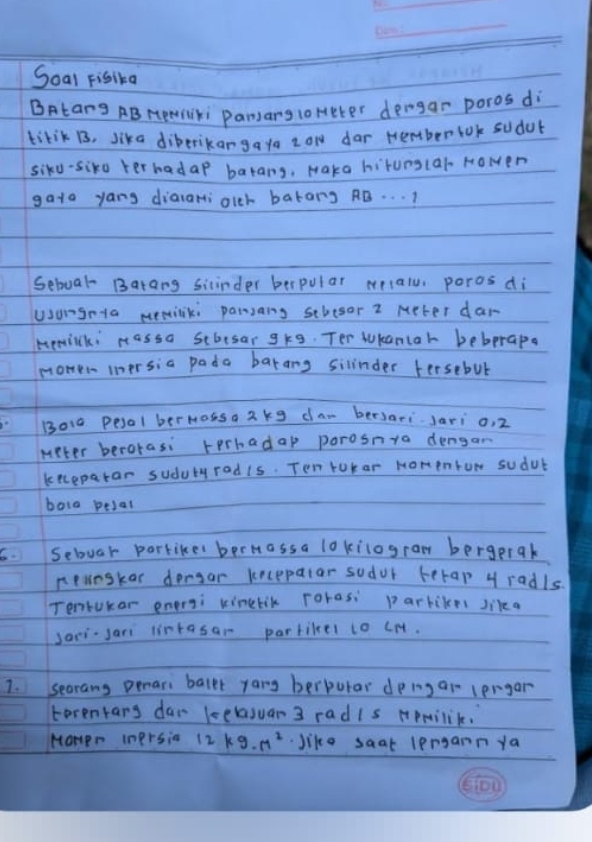 No:
Date:
Soal Fisika
Batang AB memiliki panjang 10 meter dengan poros di
titik B. Jika diberikan gaya 20N dan membentuk sudut
siku-siku terhadap batang, maka hitunglah momen
gaya yang dialami oleh batang AB ...?
Sebuah Batang silinder berputar melalui poros di
ujungnya memiliki panjang sebesar 2 meter dan
memiliki massa sebesar 9kg. Tentukanlah beberapa
momen inersia pada batang silinder tersebut
5. Bola pejal bermassa 2kg dan berjari-jari 0,2
meter berotasi terhadap porosnya dengan
kecepatan sudut 4 rad/s. Tentukan momentum sudut
bola pejal
6. Sebuah partikel bermassa 10 kilogram bergerak
melingkar dengan kecepatan sudut tetap 4 rad/s.
Tentukan energi kinetik rotasi partikel jika
jari-jari lintasan partikel 10 cm.
7. Seorang penari balet yang berputar dengan lengan
terentang dan kelajuan 3 rad/s memiliki
momen inersia 12 kg.m². Jika saat lengannya
SIDU